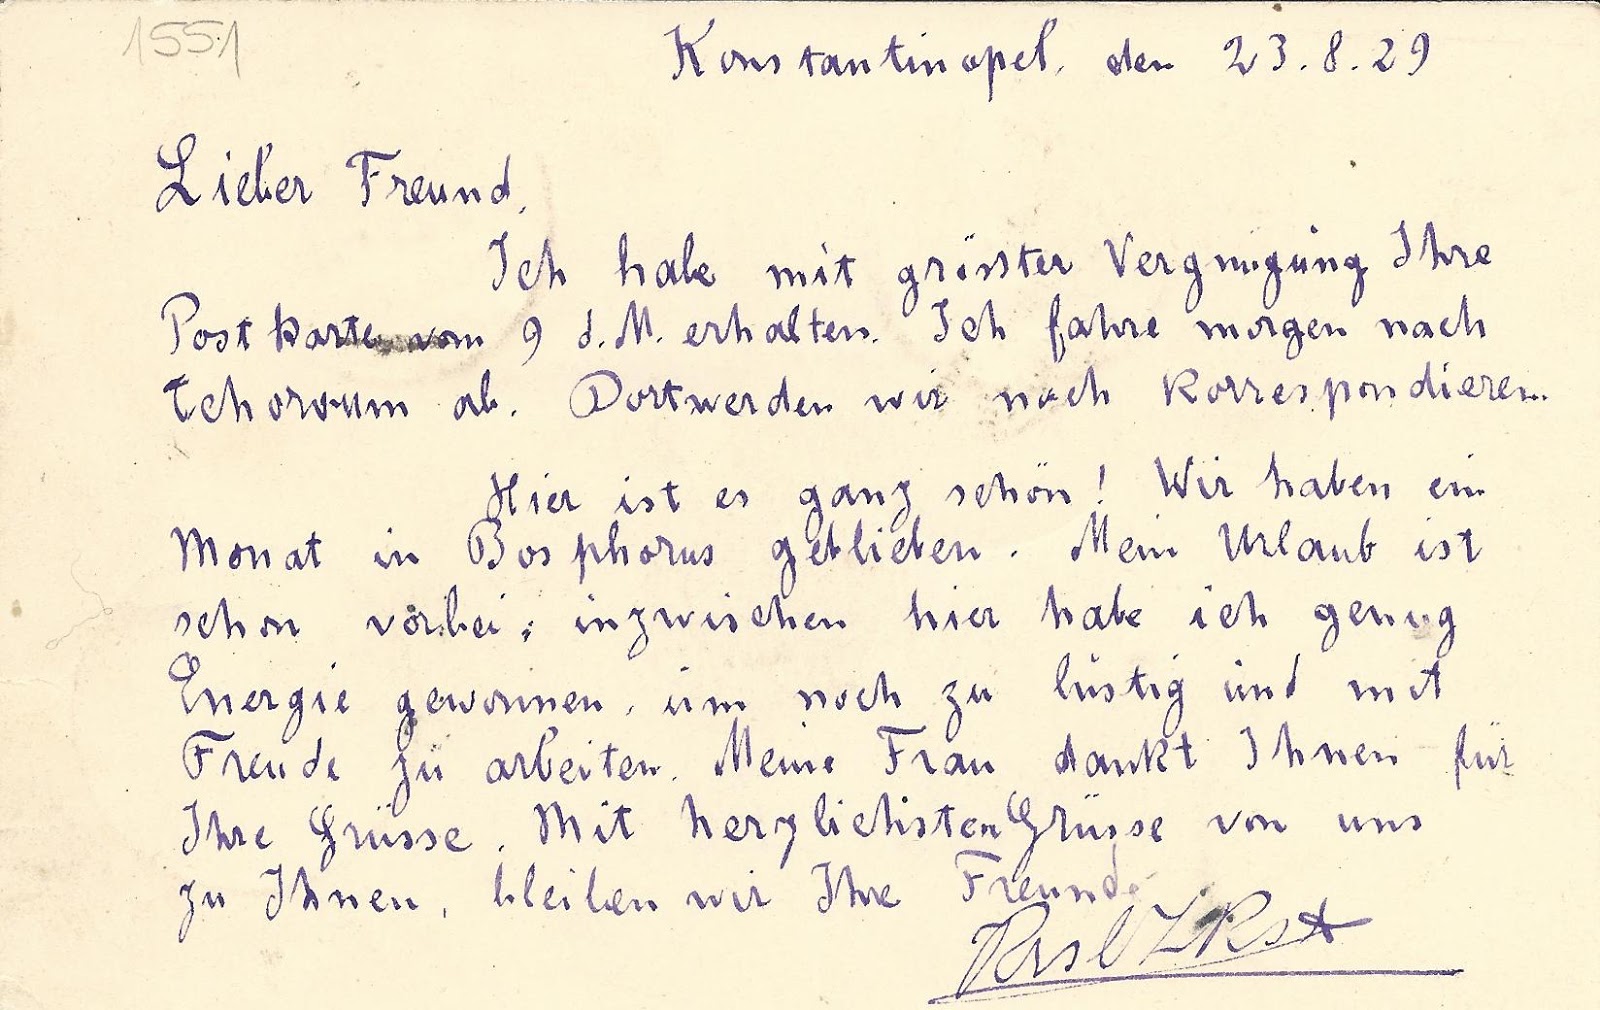 1551
Konstantinopel, den 23.8.29
Lieber Freund,
Ich habe mit grösster Vergnügung Ihre
Postkarte vom 9 d.M. erhalten. Ich fahre morgen nach
ab. Dort werden wir noch korrespondieren.
Hier ist es ganz schön! Wir haben ein
Monat in Bosphorus geblieben. Mein Urlaub ist
schon vorbei; inzwischen hier habe ich genug
Energie gewonnen, um noch zu lustig und mit
Freude zu arbeiten. Meine Frau dankt Ihnen für
Ihre Grüsse. Mit herzlichsten Grüsse von uns
zu Ihnen, bleiben wir Ihre Freunde